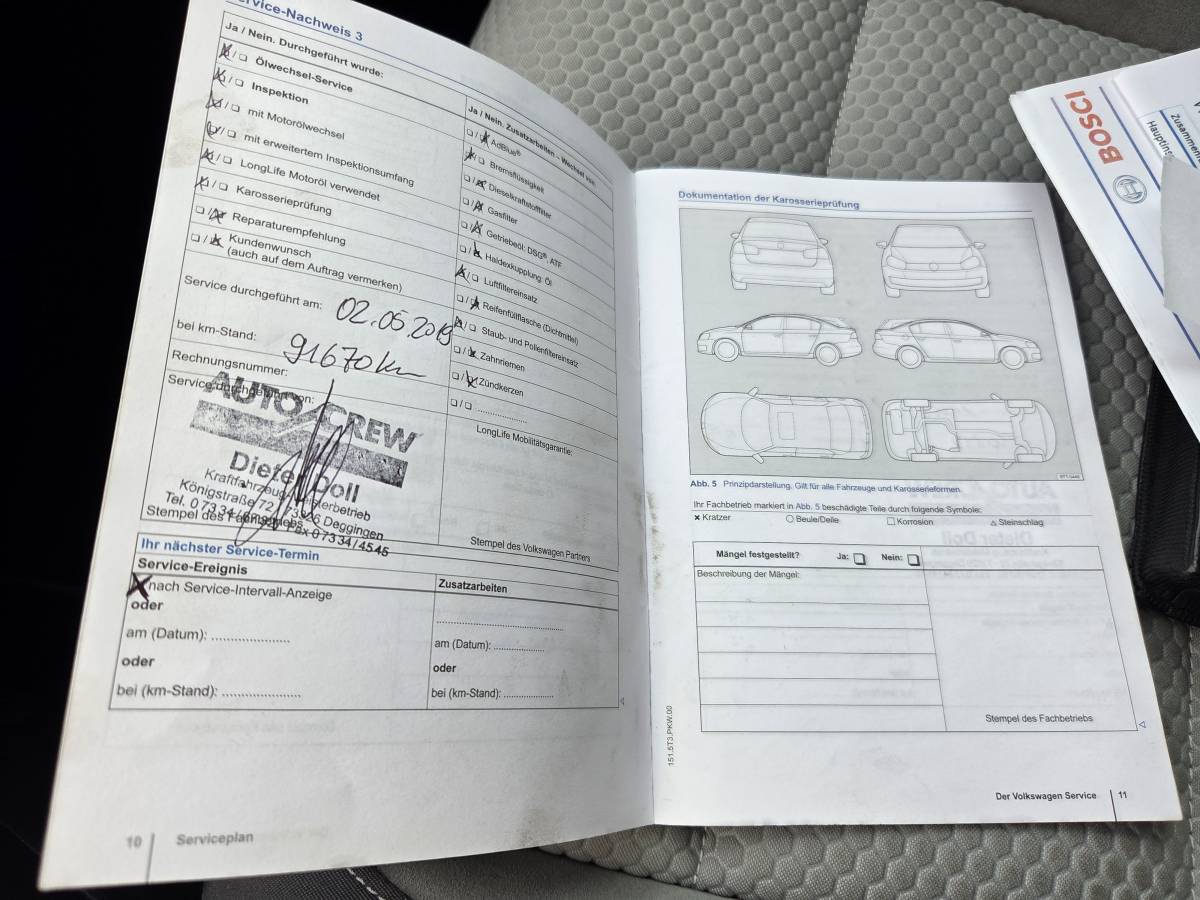 Service-Nachweis 3
Ja / Nein. Durchgeführt wurde:
☒ / ❏ Ölwechsel-Service
☒ / ❏ Inspektion
☒ / ❏ mit Motorölwechsel
☒ / ❏ mit erweitertem Inspektionsumfang
☒ / ❏ LongLife Motoröl verwendet
☒ / ❏ Karosserieprüfung
❏ / ☒ Reparaturempfehlung
❏ / ☒ Kundenwunsch
(auch auf dem Auftrag vermerken)
Service durchgeführt am: 02.05.2019
bei km-Stand: 91670 km
Rechnungsnummer:
Service durchgeführt von:
AUTO CREW
Dieter Doll
Kraftfahrzeug-Meisterbetrieb
Königstraße 72 / 73326 Deggingen
Fax 0 73 34 / 45 45
Stempel des Fachbetriebs
Ja / Nein. Zusatzarbeiten - Wechsel von:
❏ / ☒ AdBlue®
☒ / ❏ Bremsflüssigkeit
❏ / ☒ Dieselkraftstofffilter
❏ / ☒ Gasfilter
❏ / ☒ Getriebeöl: DSG®, ATF
❏ / ☒ Haldexkupplung: Öl
☒ / ❏ Luftfiltereinsatz
❏ / ☒ Reifenfüllflasche (Dichtmittel)
☒ / ❏ Staub- und Pollenfiltereinsatz
❏ / ☒ Zahnriemen
❏ / ☒ Zündkerzen
❏ / ❏ ....................
LongLife Mobilitätsgarantie:
Stempel des Volkswagen Partners
Ihr nächster Service-Termin
Service-Ereignis
☒ nach Service-Intervall-Anzeige
oder
am (Datum): ....................
oder
bei (km-Stand): ....................
Zusatzarbeiten
am (Datum): ..............
oder
bei (km-Stand): ..............
10
Serviceplan
Dokumentation der Karosserieprüfung
Abb. 5 Prinzipdarstellung. Gilt für alle Fahrzeuge und Karosserieformen.
Ihr Fachbetrieb markiert in Abb. 5 beschädigte Teile durch folgende Symbole:
× Kratzer ○ Beule/Delle □ Korrosion △ Steinschlag
Mängel festgestellt? Ja: ❏ Nein: ❏
Beschreibung der Mängel:
Stempel des Fachbetriebs
151.5T3.PKW.00
Der Volkswagen Service
11
BOSCH
Zusammen
Hauptins